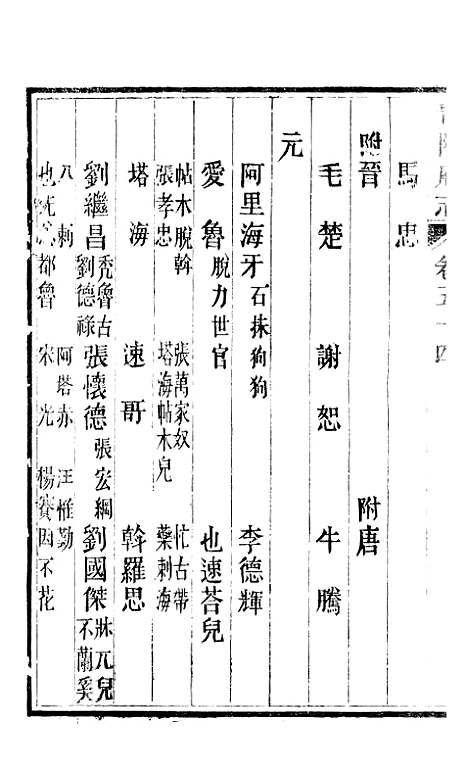 卷五十四
馬忠
附晉 附唐
毛楚 謝恕 牛騰
元
阿里海牙 石抹狗狗 李德輝
愛魯 脫力世官 也速荅兒
帖木脫斡 張萬家奴 忙古帶
張孝忠 塔海帖木兒 藥剌海
塔海 速哥 斡羅思
劉繼昌 禿魯古 劉德祿 張懷德 張宏綱 劉國傑 牀兀兒 不蘭奚
八剌 阿塔赤 汪惟勤
也 都魯 宋光 楊賽因不花